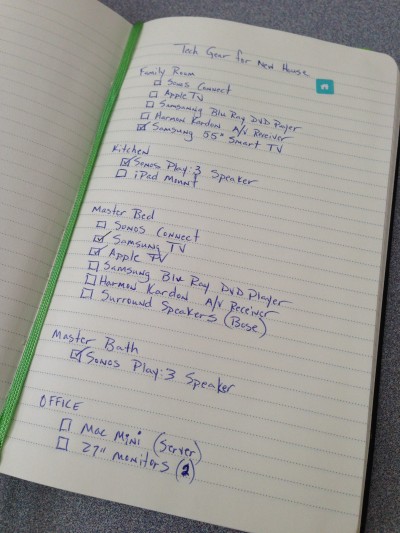 Tech Gear for New House
Family Room
☐ Sonos Connect
☐ Apple TV
☐ Samsung Blu Ray DVD Player
☐ Harmon Kardon A/V Receiver
☑ Samsung 55" Smart TV
Kitchen
☑ Sonos Play:3 Speaker
☐ iPad Mount
Master Bed
☐ Sonos Connect
☑ Samsung TV
☑ Apple TV
☐ Samsung Blu Ray DVD Player
☐ Harmon Kardon A/V Receiver
☐ Surround Speakers (Bose)
Master Bath
☑ Sonos Play:3 Speaker
OFFICE
☐ Mac Mini (Server)
☐ 27" monitors (2)